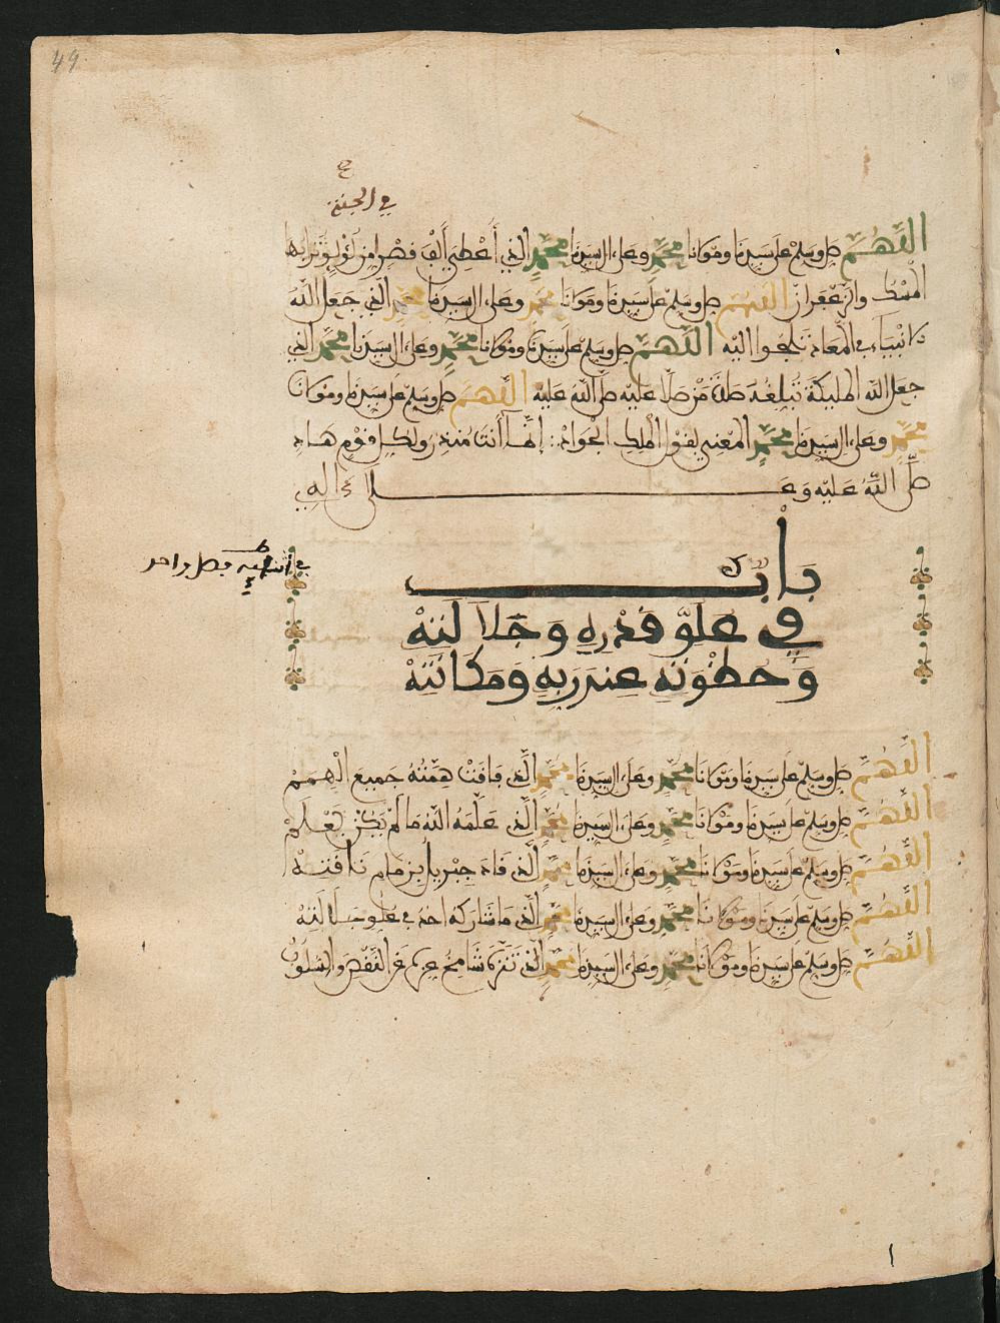 49
في الجنة
اللهم صل وسلم على سيدنا ومولانا محمد وعلى ال سيدنا محمد الذي أعطي ألف قصر من لؤلؤ ترابه
المسك والزعفران اللهم صل وسلم على سيدنا ومولانا محمد وعلى ال سيدنا محمد الذي جعل الله
الانبياء في المعاد تلجوا اليه اللهم صل وسلم على سيدنا ومولانا محمد وعلى ال سيدنا محمد الذي
جعل الله المليكة تبلغه صلاة من صلا عليه صلى الله عليه اللهم صل وسلم على سيدنا ومولانا
محمد وعلى ال سيدنا محمد المعني بقول الملك الجواد إنما أنت منذر ولكل قوم هاد
صلى الله عليه وعلى ءاله
باب
في علو قدره وجلالته
وحظوته عند ربه ومكانته
في فصل واحد
اللهم صل وسلم على سيدنا ومولانا محمد وعلى ال سيدنا محمد الذي فاقت همته جميع الهمم
اللهم صل وسلم على سيدنا ومولانا محمد وعلى ال سيدنا محمد الذي علمه الله ما لم يكن يعلم
اللهم صل وسلم على سيدنا ومولانا محمد وعلى ال سيدنا محمد الذي قاد جبريل بزمام ناقته
اللهم صل وسلم على سيدنا ومولانا محمد وعلى ال سيدنا محمد الذي ما شاركه احد في علو جلالته
اللهم صل وسلم على سيدنا ومولانا محمد وعلى ال سيدنا محمد الذي تنزه شامخ عزه عن النقص والسلوب